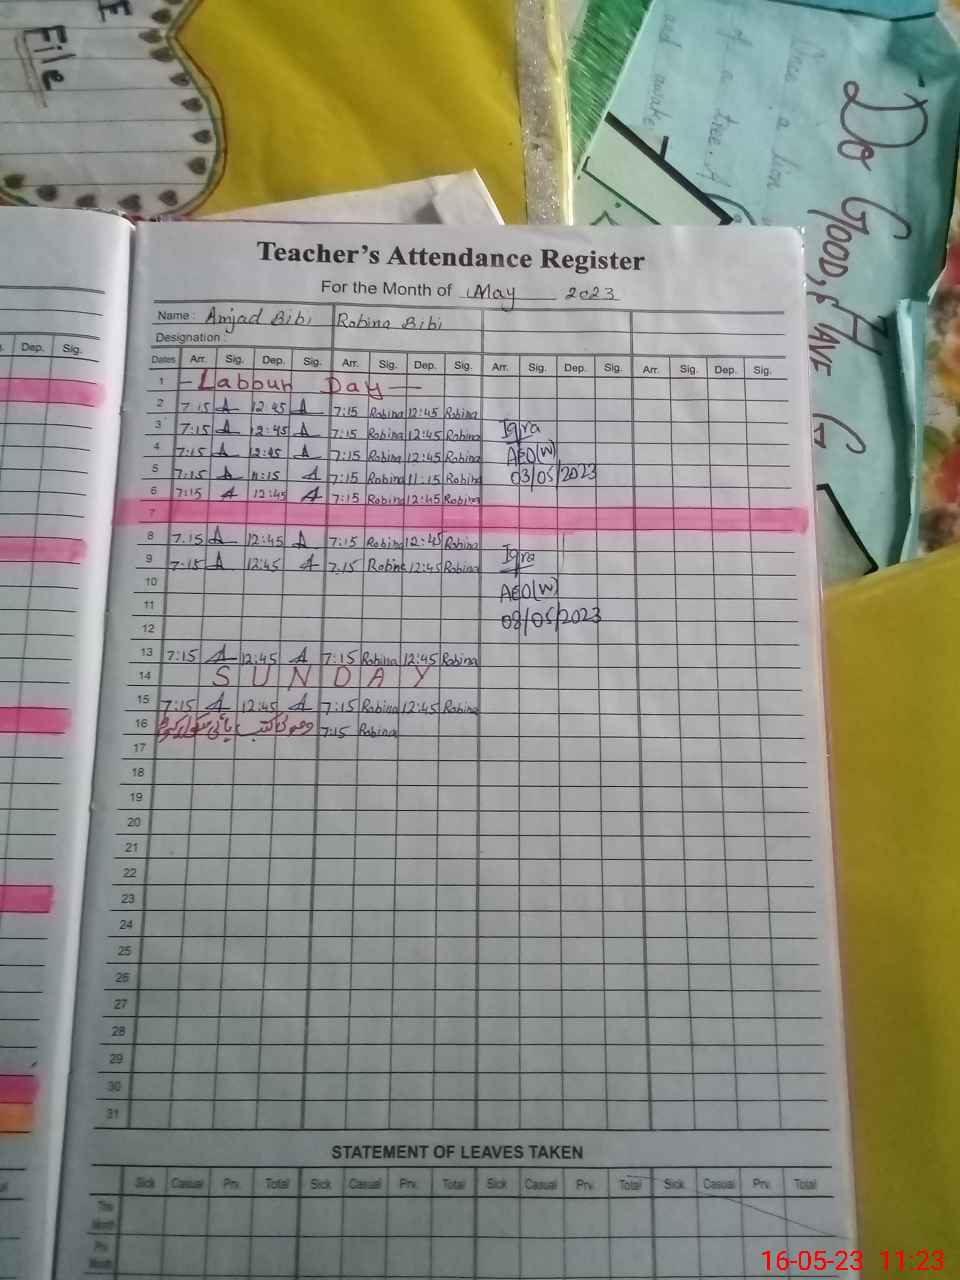 File
Do Good, HAVE G
Once a lion
of a tree. A
and awake
Teacher's Attendance Register
For the Month of May 2023
Name : Amjad Bibi Robina Bibi
Designation :
Dep. Sig.
Dates Arr. Sig. Dep. Sig. Arr. Sig. Dep. Sig. Arr. Sig. Dep. Sig. Arr. Sig. Dep. Sig.
1 - Labour Day -
2 7:15 A 12:45 A 7:15 Robina 12:45 Robina
3 7:15 A 12:45 A 7:15 Robina 12:45 Robina Iqra
4 7:15 A 12:45 A 7:15 Robina 12:45 Robina AEO(W)
5 7:15 A 11:15 A 7:15 Robina 11:15 Robina 03/05/2023
6 7:15 A 12:45 A 7:15 Robina 12:45 Robina
7
8 7.15 A 12:45 A 7:15 Robina 12:45 Robina
9 7:15 A 12:45 A 7:15 Robina 12:45 Robina Iqra
10 AEO(W)
11 08/05/2023
12
13 7:15 A 12:45 A 7:15 Robina 12:45 Robina
14 SUNDAY
15 7:15 A 12:45 A 7:15 Robina 12:45 Robina
16 7:15 Robina
17
18
19
20
21
22
23
24
25
26
27
28
29
30
31
STATEMENT OF LEAVES TAKEN
Sick Casual Prv. Total Sick Casual Prv. Total Sick Casual Prv. Total Sick Casual Prv. Total
This Month
Prv Month
16-05-23 11:23